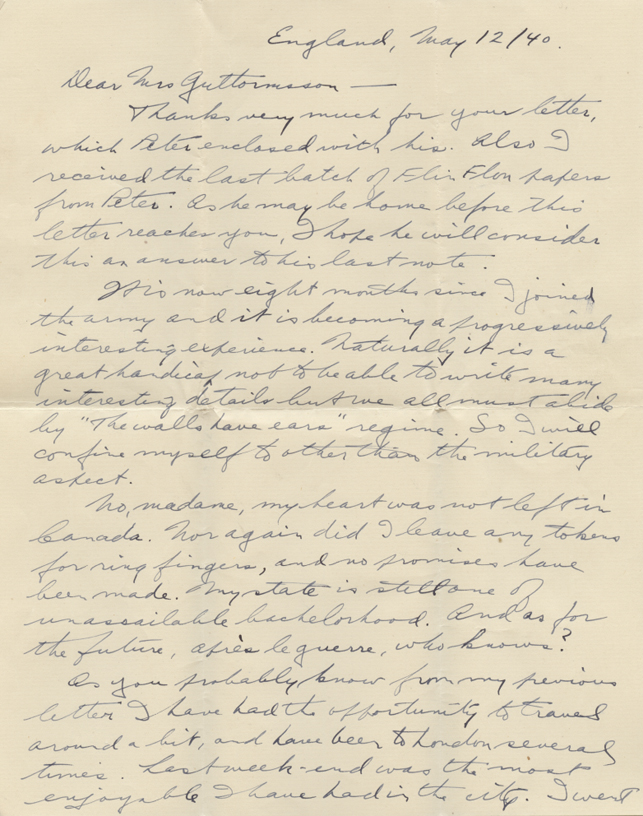 England, May 12/40.
Dear Mrs Guttormsson —
Thanks very much for your letter,
which Peter enclosed with his. Also I
received the last batch of Flin Flon papers
from Peter. As he may be home before this
letter reaches you, I hope he will consider
this an answer to his last note.
It is now eight months since I joined
the army and it is becoming a progressively
interesting experience. Naturally it is a
great handicap not to be able to write many
interesting details but we all must abide
by "The walls have ears" regime. So I will
confine myself to other than the military
aspect.
No, madame, my heart was not left in
Canada. Nor again did I leave any tokens
for ring fingers, and no promises have
been made. My state is still one of
unassailable bachelorhood. And as for
the future, après le guerre, who knows?
As you probably know from my previous
letter I have had the opportunity to travel
around a bit, and have been to London several
times. Last week-end was the most
enjoyable I have had in the city. I went